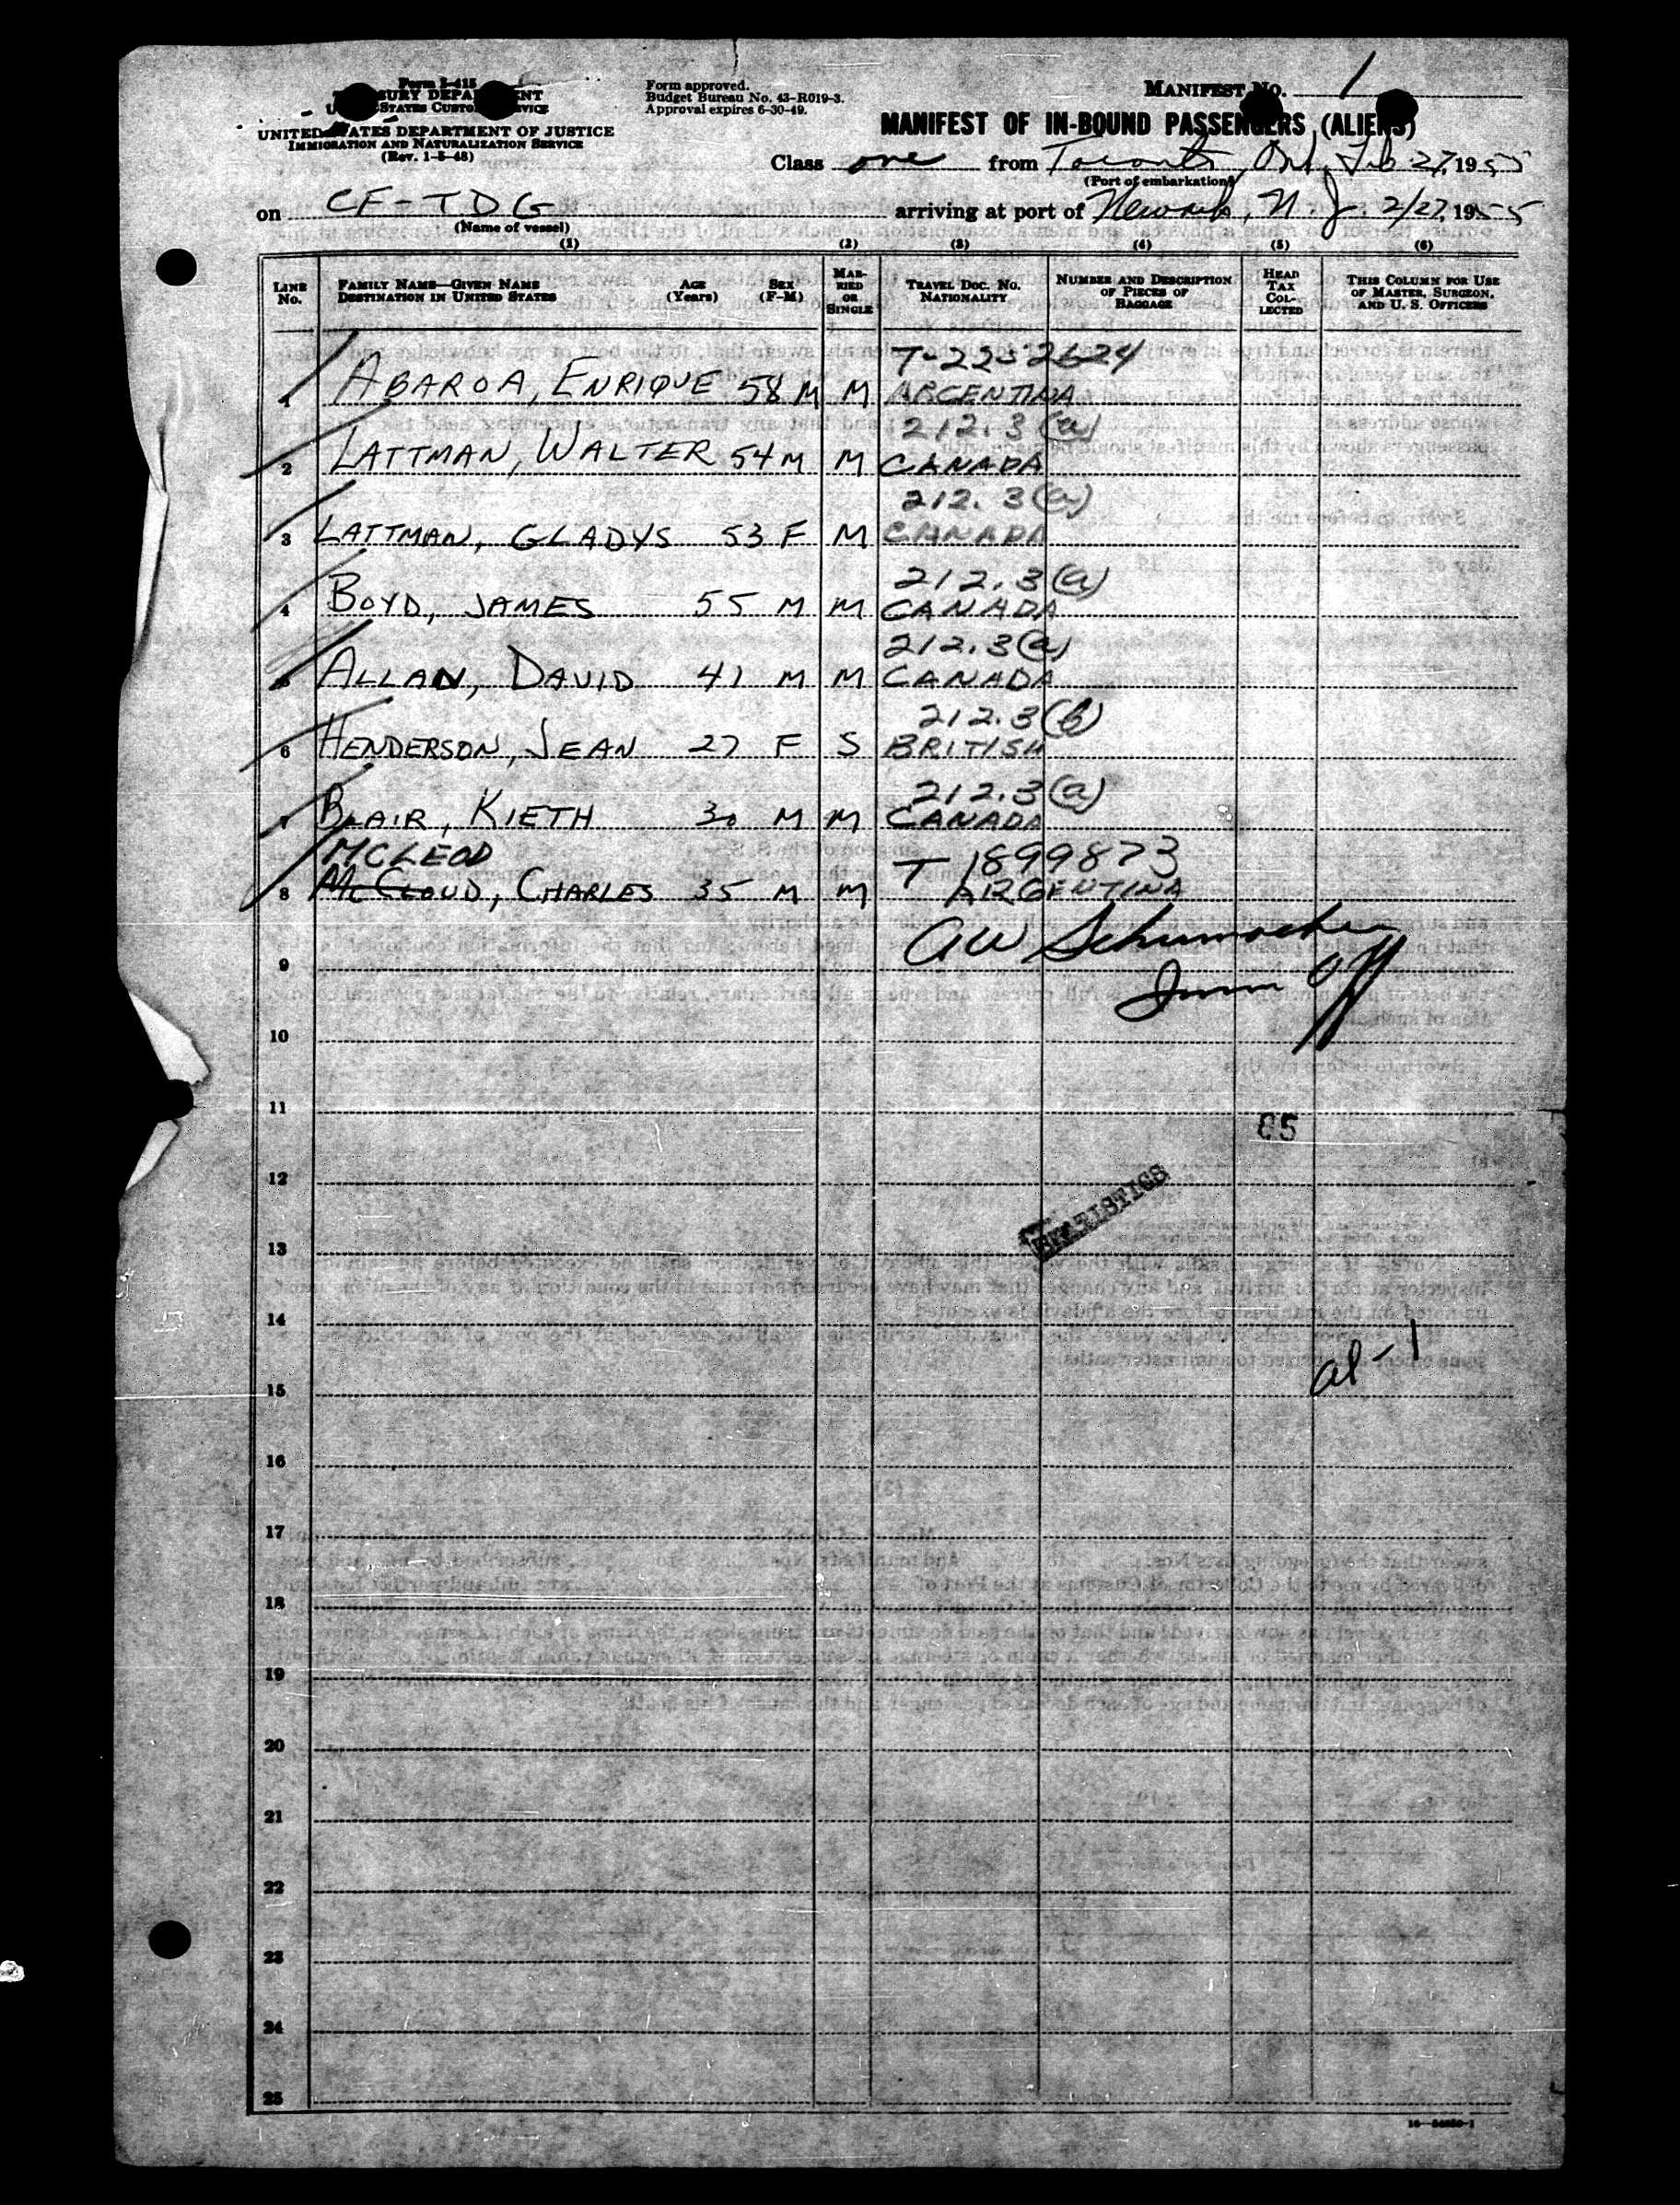 Form I-415
TREASURY DEPARTMENT
UNITED STATES CUSTOMS SERVICE
UNITED STATES DEPARTMENT OF JUSTICE
IMMIGRATION AND NATURALIZATION SERVICE
(Rev. 1-5-48)
Form approved.
Budget Bureau No. 43-R019-3.
Approval expires 6-30-49.
MANIFEST NO. 1
MANIFEST OF IN-BOUND PASSENGERS (ALIENS)
Class one from Toronto, Ont, Feb 27, 1955
(Port of embarkation)
on CF-TDG arriving at port of Newark, N.J. 2/27, 1955
(Name of vessel)
(1) (2) (3) (4) (5) (6)
LINE No. FAMILY NAME—GIVEN NAME DESTINATION IN UNITED STATES AGE (Years) SEX (F-M) MARRIED OR SINGLE TRAVEL DOC. NO. NATIONALITY NUMBER AND DESCRIPTION OF PIECES OF BAGGAGE HEAD TAX COLLECTED THIS COLUMN FOR USE OF MASTER, SURGEON, AND U. S. OFFICERS
T-2252624
1 ABAROA, ENRIQUE 58 M M ARGENTINA
212.3(a)
2 LATTMAN, WALTER 54 M M CANADA
212.3(a)
3 LATTMAN, GLADYS 53 F M CANADA
212.3(a)
4 BOYD, JAMES 55 M M CANADA
212.3(a)
5 ALLAN, DAVID 41 M M CANADA
212.3(b)
6 HENDERSON, JEAN 27 F S BRITISH
212.3(a)
7 BLAIR, KIETH 30 M M CANADA
MCLEOD T 1899873
8 McCLOUD, CHARLES 35 M M ARGENTINA
AW Schumacher
9
Imm Off
10
11
85
12
STATISTICS
13
14
al-1
15
16
17
18
19
20
21
22
23
24
25